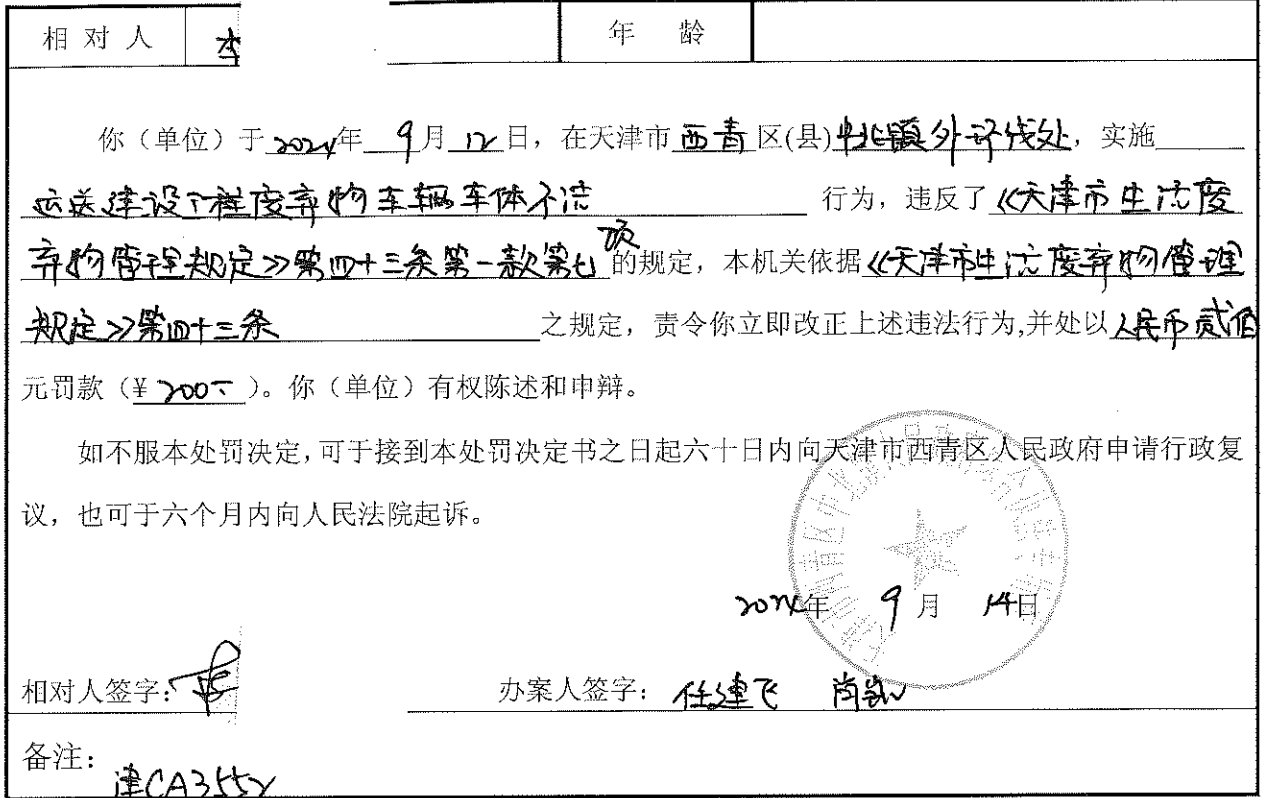 相对人 李 年龄
你（单位）于2024年 9月12日，在天津市西青区(县)中北镇外环线处，实施
运送建设工程废弃物车辆车体不洁 行为，违反了《天津市生活废
弃物管理规定》第四十三条第一款第七项的规定，本机关依据《天津市生活废弃物管理
规定》第四十三条 之规定，责令你立即改正上述违法行为,并处以人民币贰佰
元罚款（¥200元）。你（单位）有权陈述和申辩。
如不服本处罚决定,可于接到本处罚决定书之日起六十日内向天津市西青区人民政府申请行政复
议，也可于六个月内向人民法院起诉。
2024年 9月 14日
相对人签字： 办案人签字：任建飞 肖凯
备注：津CA3552